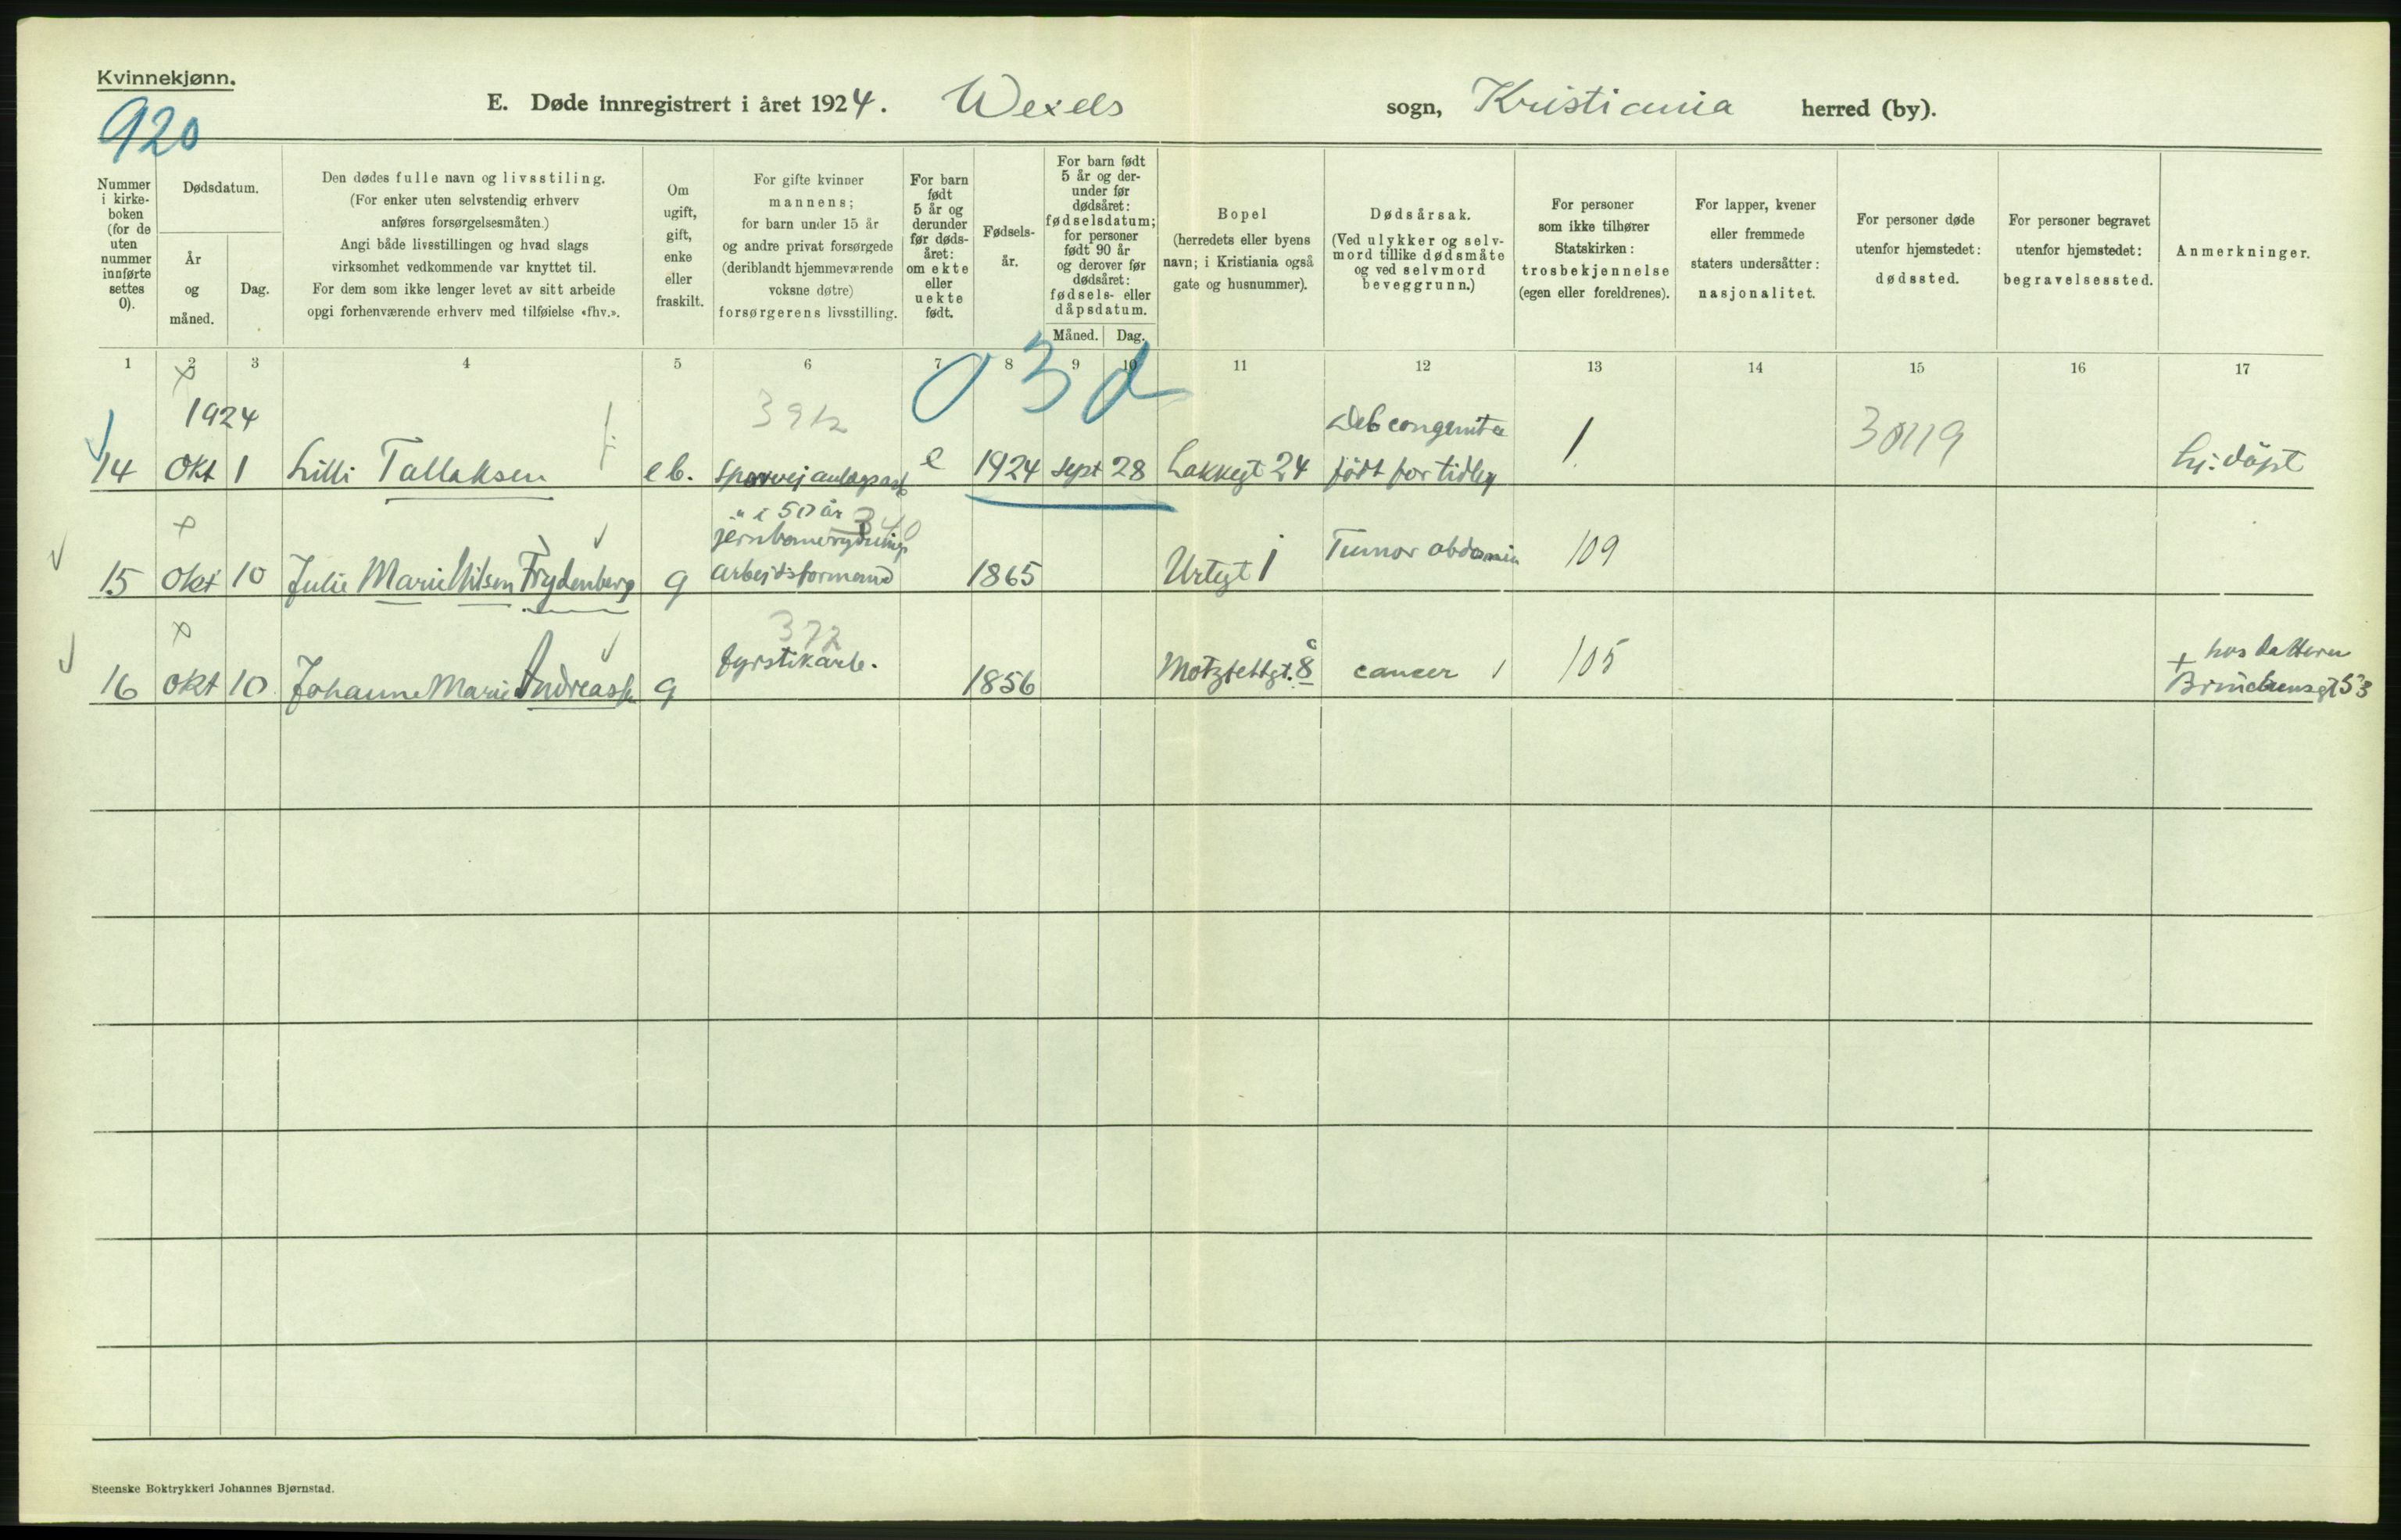 Kvinnekjønn.
920
E. Døde innregistrert i året 1924. Wexels sogn, Kristiania herred (by).
Nummer i kirke- boken (for de uten nummer innførte settes 0).
Dødsdatum.
År og måned.
Dag.
Den dødes fulle navn og livsstiling.
(For enker uten selvstendig erhverv
anføres forsørgelsesmåten.)
Angi både livsstillingen og hvad slags
virksomhet vedkommende var knyttet til.
For dem som ikke lenger levet av sitt arbeide
opgi forhenværende erhverv med tilføielse «fhv.».
Om
ugift,
gift,
enke
eller
fraskilt.
For gifte kvinner
mannens;
for barn under 15 år
og andre privat forsørgede
(deriblandt hjemmeværende
voksne døtre)
forsørgerens livsstilling.
For barn
født
5 år og
derunder
før døds-
året:
om ekte
eller
uekte
født.
Fødsels-
år.
For barn født
5 år og der-
under før
dødsåret:
fødselsdatum;
for personer
født 90 år
og derover før
dødsåret:
fødsels- eller
dåpsdatum.
Måned. Dag.
Bopel
(herredets eller byens
navn; i Kristiania også
gate og husnummer).
Dødsårsak.
(Ved ulykker og selv-
mord tillike dødsmåte
og ved selvmord
beveggrunn.)
For personer
som ikke tilhører
Statskirken:
trosbekjennelse
(egen eller foreldrenes).
For lapper, kvener
eller fremmede
staters undersåtter:
nasjonalitet.
For personer døde
utenfor hjemstedet:
dødssted.
For personer begravet
utenfor hjemstedet:
begravelsessted.
Anmerkninger.
1 2 3 4 5 6 7 8 9 10 11 12 13 14 15 16 17
03d
1924 Deb congenita 30119
14 Okt 1 Lilli Tallaksen e b. e 1924 Sept 28 Lakkegt 24 født for tidlig 1 hj: døpt
" i 50 år 340
15 Okt 10 Julie Marie Nilsen Frydenberg g arbeidsformand 1865 Urtegt 1 Tumor abdomin 109
372 hos datteren
16 Okt 10 Johanne Marie Andreass g fyrstikarb. 1856 Motzfeldtgt. 8 c cancer 1 105 + Brinckensgt 53
Steenske Boktrykkeri Johannes Bjørnstad.